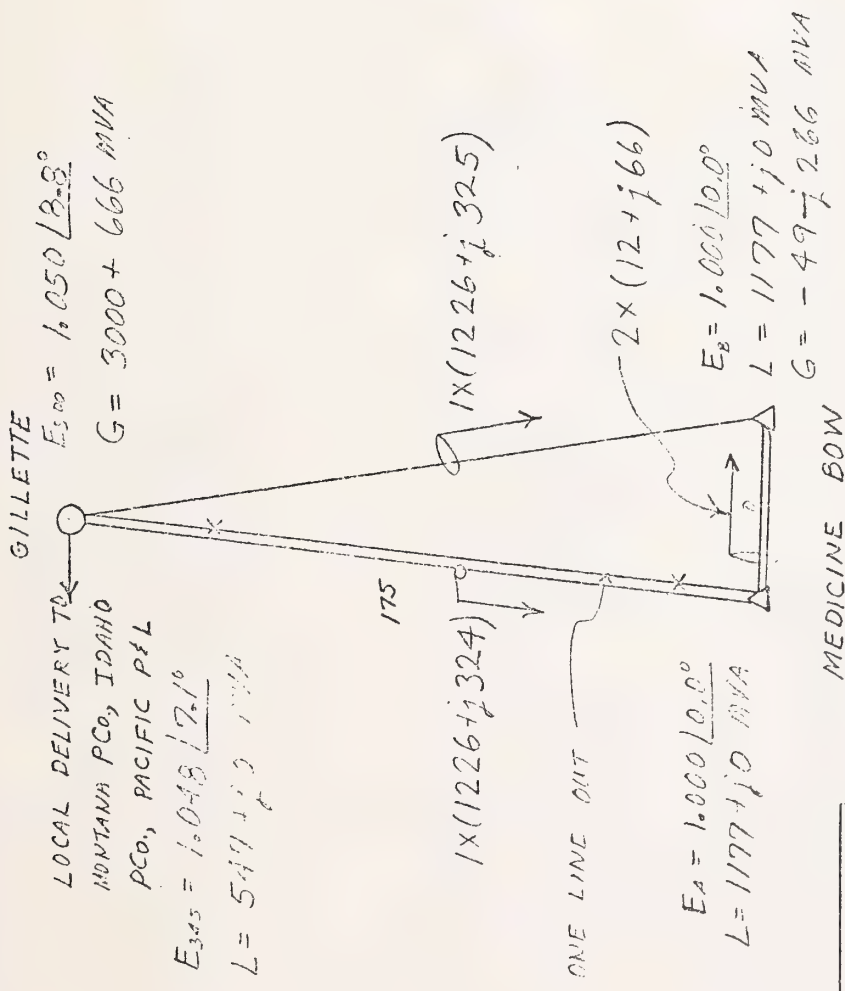 GILLETTE
E500 = 1.050 /8.8°
G = 3000 + 666 MVA
LOCAL DELIVERY TO
MONTANA PCO., IDAHO
PCO., PACIFIC P&L
E345 = 1.048 /7.1°
L =
175
1X(1226+j324)
1X(1226+j325)
ONE LINE OUT
2X(12+j66)
EA = 1.000 /0.0°
L = 1177+j0 MVA
EB = 1.000 /0.0°
L = 1177+j0 MVA
G = -49-j266 MVA
MEDICINE BOW